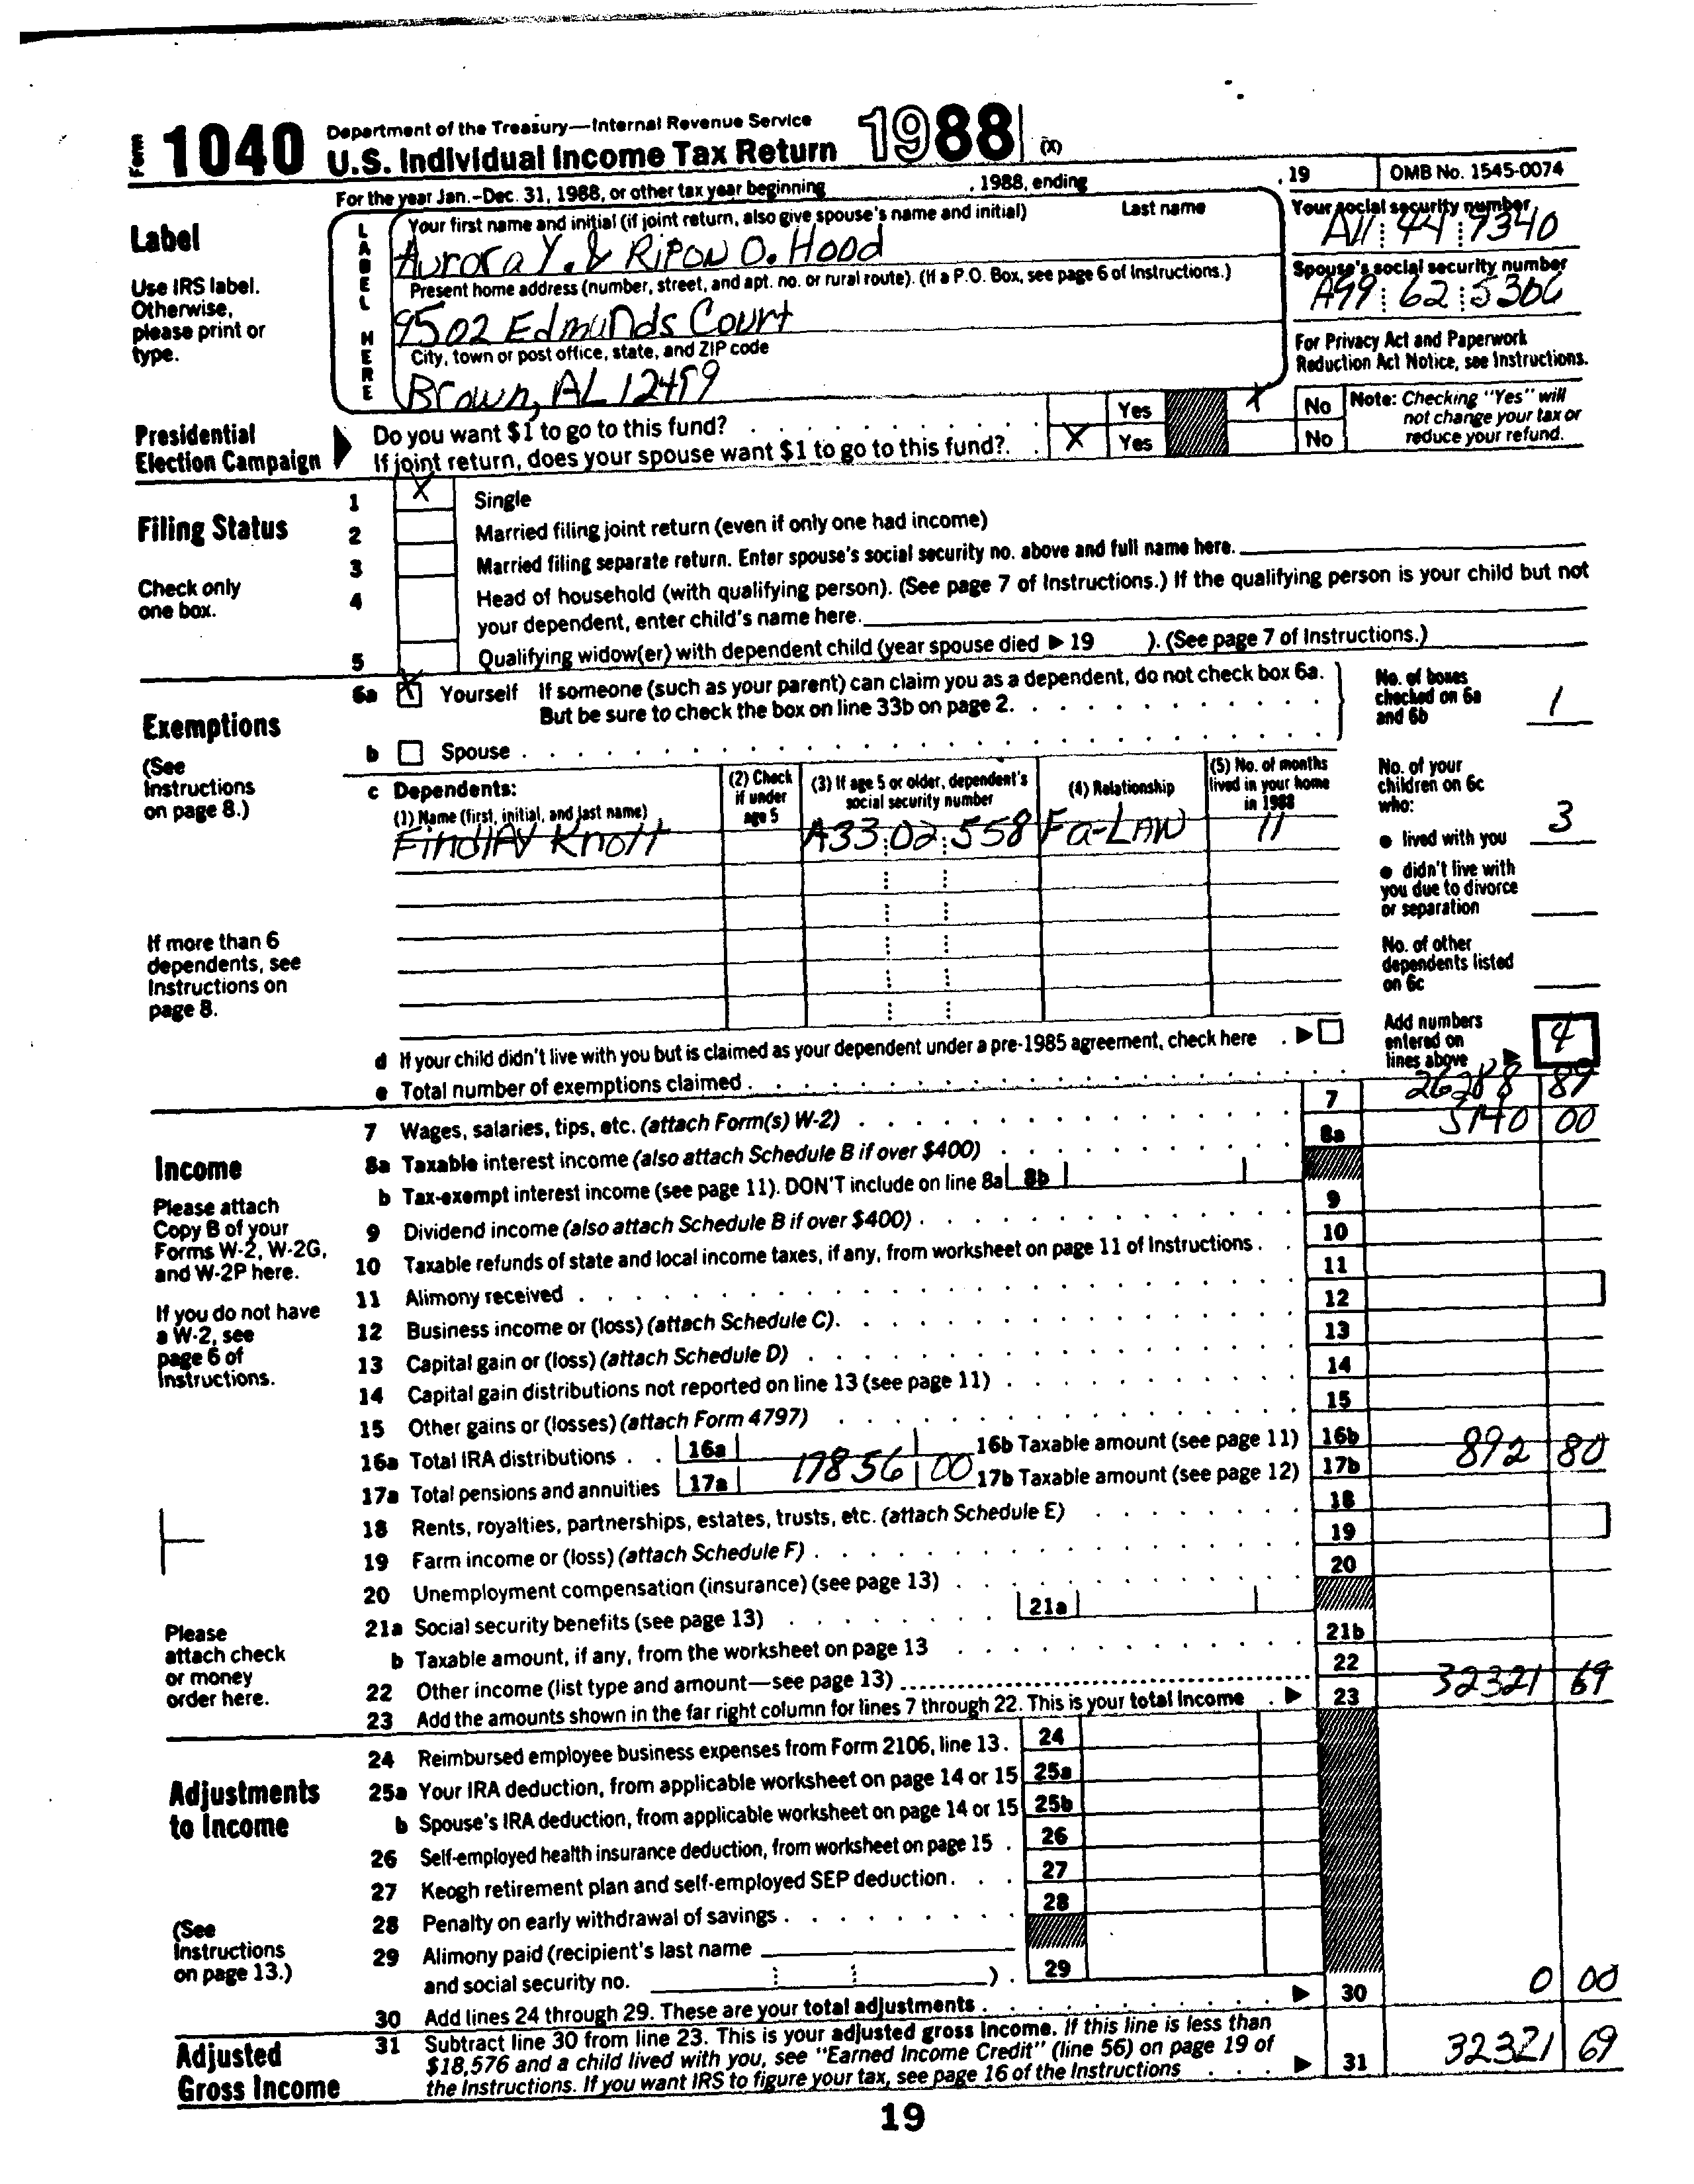 Form 1040 Department of the Treasury—Internal Revenue Service
U.S. Individual Income Tax Return 1988 (X)
For the year Jan.–Dec. 31, 1988, or other tax year beginning , 1988, ending , 19 OMB No. 1545-0074
Label
Use IRS label. Otherwise, please print or type.
LABEL HERE
Your first name and initial (if joint return, also give spouse's name and initial) Last name
Aurora Y. & Ripon O. Hood
Present home address (number, street, and apt. no. or rural route). (If a P.O. Box, see page 6 of Instructions.)
9502 Edmunds Court
City, town or post office, state, and ZIP code
Brown, AL 12459
Your social security number
A11 44 7340
Spouse's social security number
A99 62 5306
For Privacy Act and Paperwork Reduction Act Notice, see Instructions.
Presidential Election Campaign
Do you want $1 to go to this fund? Yes X No
If joint return, does your spouse want $1 to go to this fund? X Yes No
Note: Checking "Yes" will not change your tax or reduce your refund.
Filing Status
Check only one box.
1 X Single
2 Married filing joint return (even if only one had income)
3 Married filing separate return. Enter spouse's social security no. above and full name here.
4 Head of household (with qualifying person). (See page 7 of Instructions.) If the qualifying person is your child but not
your dependent, enter child's name here.
5 Qualifying widow(er) with dependent child (year spouse died ▶ 19 ). (See page 7 of Instructions.)
Exemptions
(See Instructions on page 8.)
6a X Yourself If someone (such as your parent) can claim you as a dependent, do not check box 6a.
But be sure to check the box on line 33b on page 2.
b Spouse
No. of boxes checked on 6a and 6b 1
c Dependents:
(1) Name (first, initial, and last name)
(2) Check if under age 5
(3) If age 5 or older, dependent's social security number
(4) Relationship
(5) No. of months lived in your home in 1988
Findlay Knott A33 02 558 Fa-Law 11
No. of your children on 6c who:
● lived with you 3
● didn't live with you due to divorce or separation
No. of other dependents listed on 6c
If more than 6 dependents, see Instructions on page 8.
d If your child didn't live with you but is claimed as your dependent under a pre-1985 agreement, check here ▶
e Total number of exemptions claimed
Add numbers entered on lines above ▶ 4
Income
Please attach Copy B of your Forms W-2, W-2G, and W-2P here.
If you do not have a W-2, see page 6 of Instructions.
Please attach check or money order here.
7 Wages, salaries, tips, etc. (attach Form(s) W-2) 7 26288 89
8a Taxable interest income (also attach Schedule B if over $400) 8a 5140 00
b Tax-exempt interest income (see page 11). DON'T include on line 8a 8b
9 Dividend income (also attach Schedule B if over $400) 9
10 Taxable refunds of state and local income taxes, if any, from worksheet on page 11 of Instructions 10
11 Alimony received 11
12 Business income or (loss) (attach Schedule C) 12
13 Capital gain or (loss) (attach Schedule D) 13
14 Capital gain distributions not reported on line 13 (see page 11) 14
15 Other gains or (losses) (attach Form 4797) 15
16a Total IRA distributions 16a 16b Taxable amount (see page 11) 16b
17a Total pensions and annuities 17a 17856 00 17b Taxable amount (see page 12) 17b 892 80
18 Rents, royalties, partnerships, estates, trusts, etc. (attach Schedule E) 18
19 Farm income or (loss) (attach Schedule F) 19
20 Unemployment compensation (insurance) (see page 13) 20
21a Social security benefits (see page 13) 21a
b Taxable amount, if any, from the worksheet on page 13 21b
22 Other income (list type and amount—see page 13) 22
23 Add the amounts shown in the far right column for lines 7 through 22. This is your total income ▶ 23 32321 69
Adjustments to Income
(See Instructions on page 13.)
24 Reimbursed employee business expenses from Form 2106, line 13. 24
25a Your IRA deduction, from applicable worksheet on page 14 or 15 25a
b Spouse's IRA deduction, from applicable worksheet on page 14 or 15 25b
26 Self-employed health insurance deduction, from worksheet on page 15 26
27 Keogh retirement plan and self-employed SEP deduction 27
28 Penalty on early withdrawal of savings 28
29 Alimony paid (recipient's last name
and social security no. ) 29
30 Add lines 24 through 29. These are your total adjustments ▶ 30 0 00
Adjusted Gross Income
31 Subtract line 30 from line 23. This is your adjusted gross income. If this line is less than
$18,576 and a child lived with you, see "Earned Income Credit" (line 56) on page 19 of
the Instructions. If you want IRS to figure your tax, see page 16 of the Instructions ▶ 31 32321 69
19